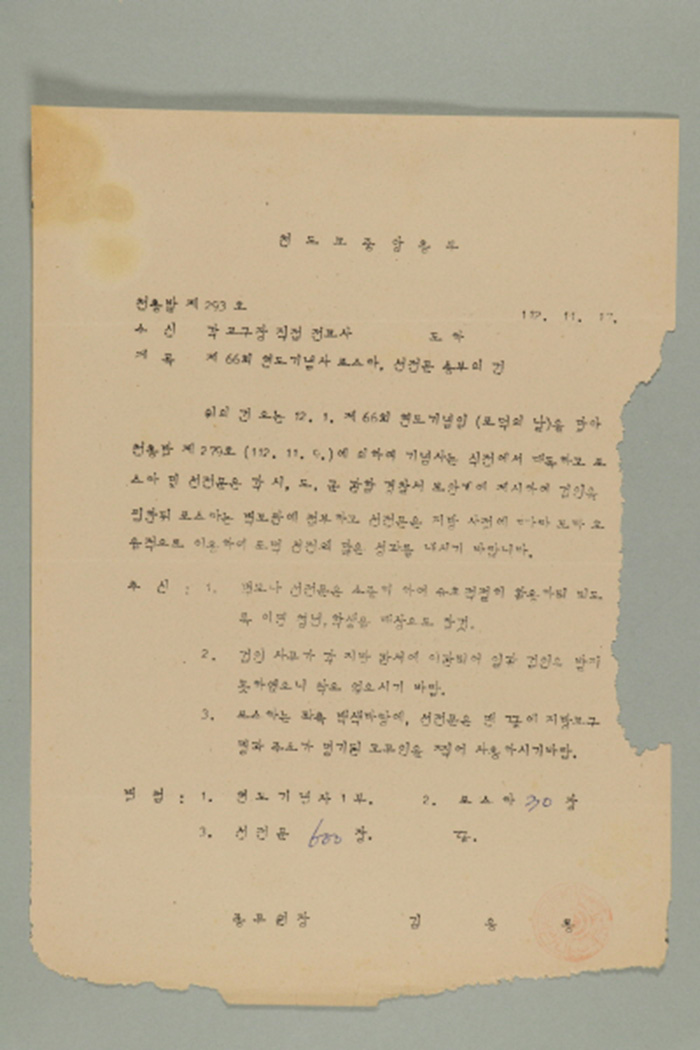 천도교중앙총부
천총발 제 293 호
112. 11. 17.
수 신 각 교구장 직접 전교사 도 하
제 목 제 66회 현도기념사 포스타, 선전문 송부의 건
위의 건 오는 12. 1. 제 66회 현도기념일 (포덕의 날)을 맞아
천총발 제 279호 (112. 11. 9.)에 의하여 기념사는 식전에서 하고 포
스타 및 선전문은 각 시, 도, 군 관할 경찰서 보안계에 제시하여 검인을
포스타는 벽보판에 첨부하고 선전문은 지방 사정에 따라
으로 이용하여 포덕 선전의 많은 성과를 내시기 바랍니다.
추 신 : 1. 선전문은 소중히 하여 활용하되
록 이면 청년, 학생을 대상으로 할것.
2. 검인 사무가 각 지방 관서에 이관되어 일괄 검인을 받지
못하였으니 착오 없으시기 바람.
3. 포스타는 좌측 백색바탕에, 선전문은 맨 끝에 지방교구
명과 주소가 명기된 고무인을 찍어 사용하시기바람.
별 첨 : 1. 현도기념사 1부. 2. 포스타 30 장
3. 선전문 600 장. 끝.
총무원장 김